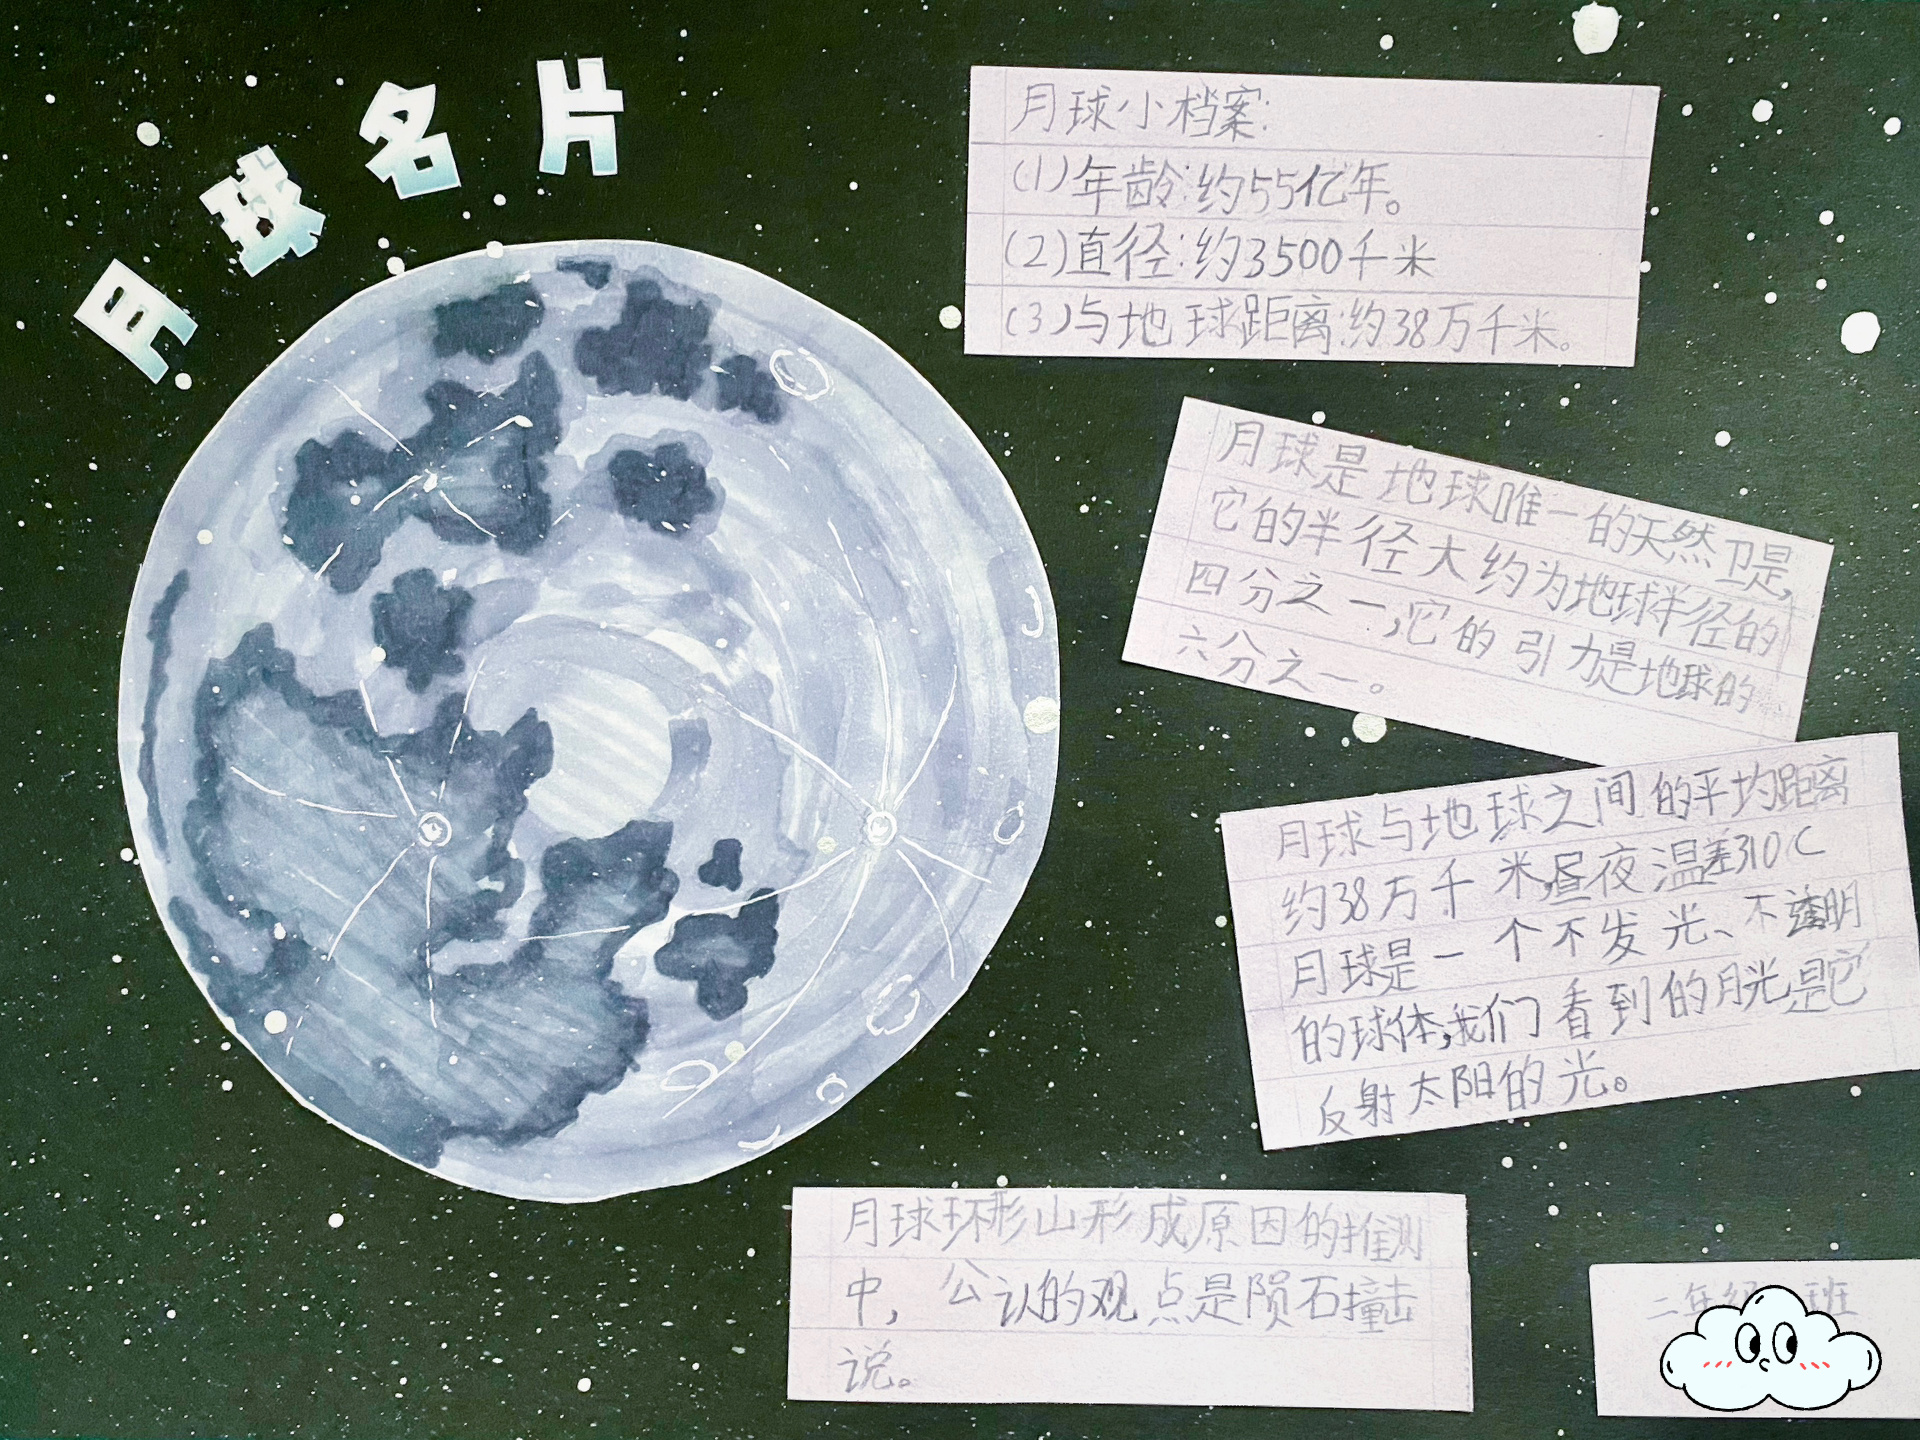 月球名片
月球小档案:
(1)年龄:约55亿年。
(2)直径:约3500千米
(3)与地球距离:约38万千米。
月球是地球唯一的天然卫是,
它的半径大约为地球半径的
四分之一,它的引力是地球的
六分之一。
月球与地球之间的平均距离
约38万千米,昼夜温差310C
月球是一个不发光、不透明
的球体,我们看到的月光是它
反射太阳的光。
月球环形山形成原因的推测
中,公认的观点是陨石撞击
说。
二年级 班